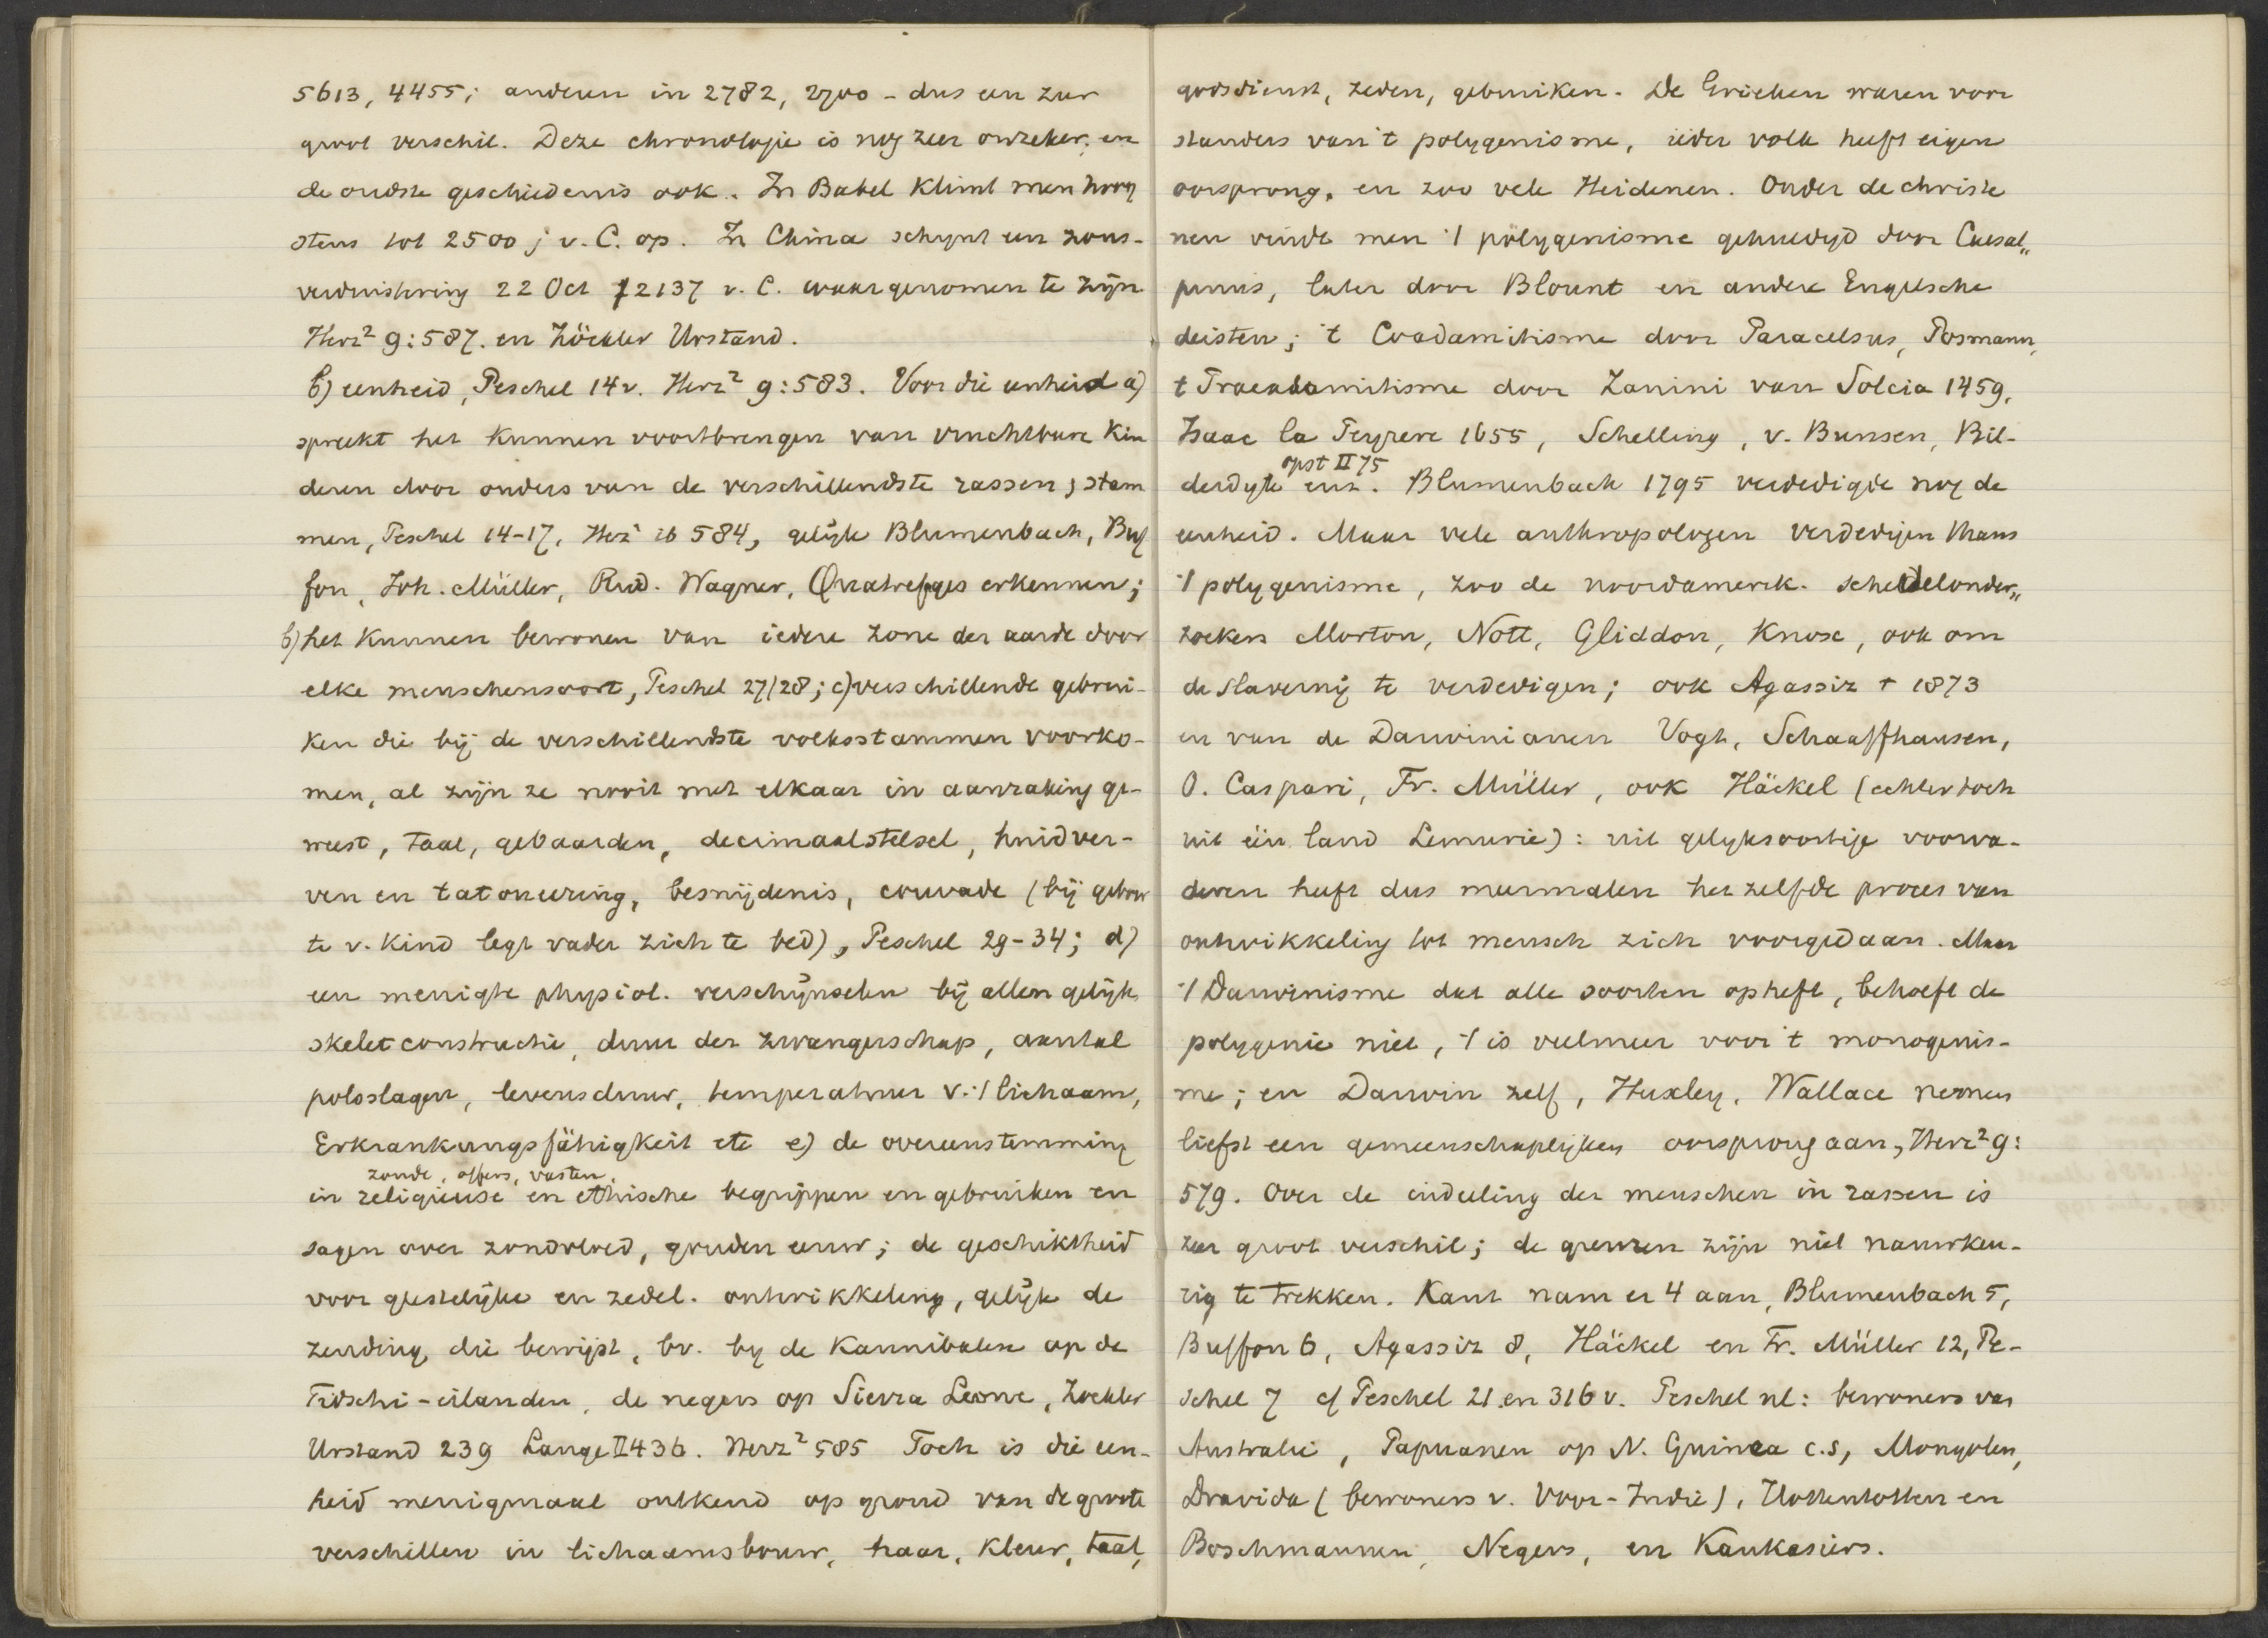 5613, 4455; anderen in 2782, 2700 - dus een zeer
groot verschil. Deze chronologie is nog zeer onzeker, en
de oudste geschiedenis ook. In Babel klimt men hoog
stens tot 2500 j v. C. op. In China schynt een zons-
verduistering 22 Oct 2137 v. C. waargenomen te zijn
Herz² 9:587. en Zöckler Urstand.
b) eenheid, Peschel 14 v. Herz² 9:583. Voor die eenheid a)
spreekt het kunnen voortbrengen van vruchtbare kin
deren door ouders van de verschillendste rassen, stam
men, Peschel 14-17, Herz² ib 584, gelijk Blumenbach, Buf
fon, Joh. Müller, Rud. Wagner, Quatrefages erkennen;
b) het kunnen bewonen van iedere zone der aarde door
elke menschensoort, Peschel 27/28; c) verschillende gebrui-
ken die bij de verschillendste volksstammen voorko-
men, al zijn ze nooit met elkaar in aanraking ge-
weest, taal, gebaarden, decimaalstelsel, huidver-
ven en tatoueering, besnijdenis, couvade (bij geboor
te v. kind legt vader zich te bed), Peschel 29-34; d)
een menigte physiol. verschijnselen bij allen gelijk
skeletconstructie, duur der zwangerschap, aantal
polsslagen, levensduur, temperatuur v. 't lichaam,
Erkrankungsfähigkeit etc e) de overeenstemming
zonde, offers, vasten,
in religieuse en ethische begrippen en gebruiken en
sagen over zondvloed, gouden eeuw; de geschiktheid
voor geestelijke en zedel. ontwikkeling, gelijk de
zending, die bewijst, bv. by de Kannibalen op de
Fidschi-eilanden, de negers op Sierra Leone, Zöckler
Urstand 239 Lange II 436. Herz² 585 Toch is die een-
heid menigmaal ontkend op grond van de groote
verschillen in lichaamsbouw, haar, kleur, taal,
godsdienst, zeden, gebruiken. De Grieken waren voor
standers van 't polygenisme, ieder volk heeft eigen
oorsprong, en zoo vele Heidenen. Onder de christe
nen vindt men 't polygenisme gehuldigd door Caesal„
pinus, later door Blount en andere Engelsche
deisten; 't Coadamitisme door Paracelsus, Posmann,
t Praeadamitisme door Zanini van Solcia 1459,
Izaac la Peyrere 1655, Schelling, v. Bunsen, Bil-
opst II 75
derdyk enz. Blumenbach 1795 verdedigde nog de
eenheid. Maar vele anthropologen verdedigen thans
't polygenisme, zoo de noordamerik. schedelonder„
zoekers Morton, Nott, Gliddon, Knox, ook om
de slavernij te verdedigen; ook Agassiz † 1873
en van de Darwinianen Vogt, Schaaffhausen,
O. Caspari, Fr. Müller, ook Häckel (echter toch
uit één land Lemurie): uit gelyksoortige voorva-
deren heeft dus meermalen hetzelfde proces van
ontwikkeling tot mensch zich voorgedaan. Maar
't Darwinisme dat alle soorten opheft, behoeft de
polygenie niet, 't is veelmeer voor 't monogenis-
me; en Darwin zelf, Huxley, Wallace nemen
liefst een gemeenschaplijken oorsprong aan, Herz² 9:
579. Over de indeeling der menschen in rassen is
zeer groot verschil; de grenzen zijn niet nauwkeu-
rig te trekken. Kant nam er 4 aan, Blumenbach 5,
Buffon 6, Agassiz 8, Häckel en Fr. Müller 12, Pe-
schel 7 cf Peschel 21 en 316 v. Peschel nl: bewoners van
Australie, Papuanen op N. Guinea c.s, Mongolen,
Dravida (bewoners v. Voor-Indie), Hottentotten en
Boschmannen, Negers, en Kaukasiers.